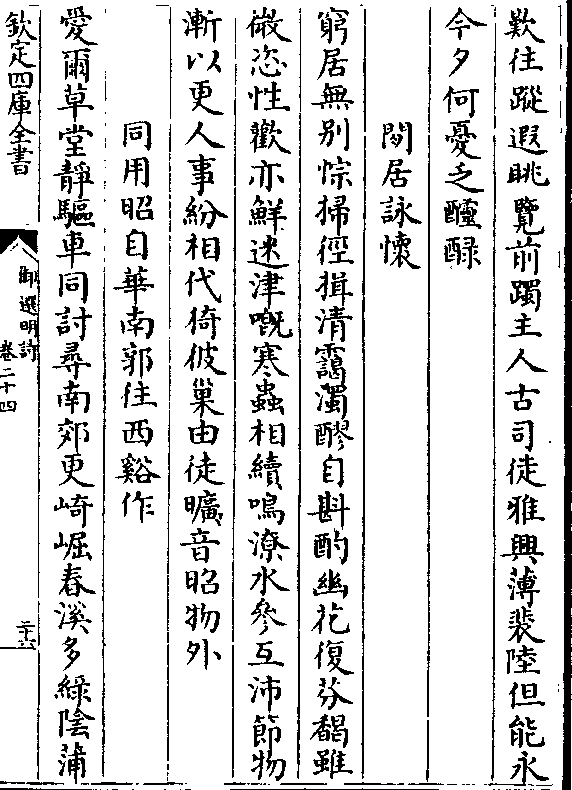 歎往蹤遐眺覽前躅主人古司徒雅興薄裴陸但能永
今夕何憂乏醽醁
閒居詠懷
窮居無别悰掃徑揖清靄濁醪自斟酌幽花復芬馤雖
微恣性歡亦鮮迷津嘅寒蟲相續鳴潦水參互沛節物
漸以更人事紛相代猗彼巢由徒曠音昭物外
同用昭自華南郭往西谿作
愛爾草堂靜驅車同討尋南郊更崎崛春溪多緑陰蒲
欽定四庫全書
御選明詩
卷二十四
二十六